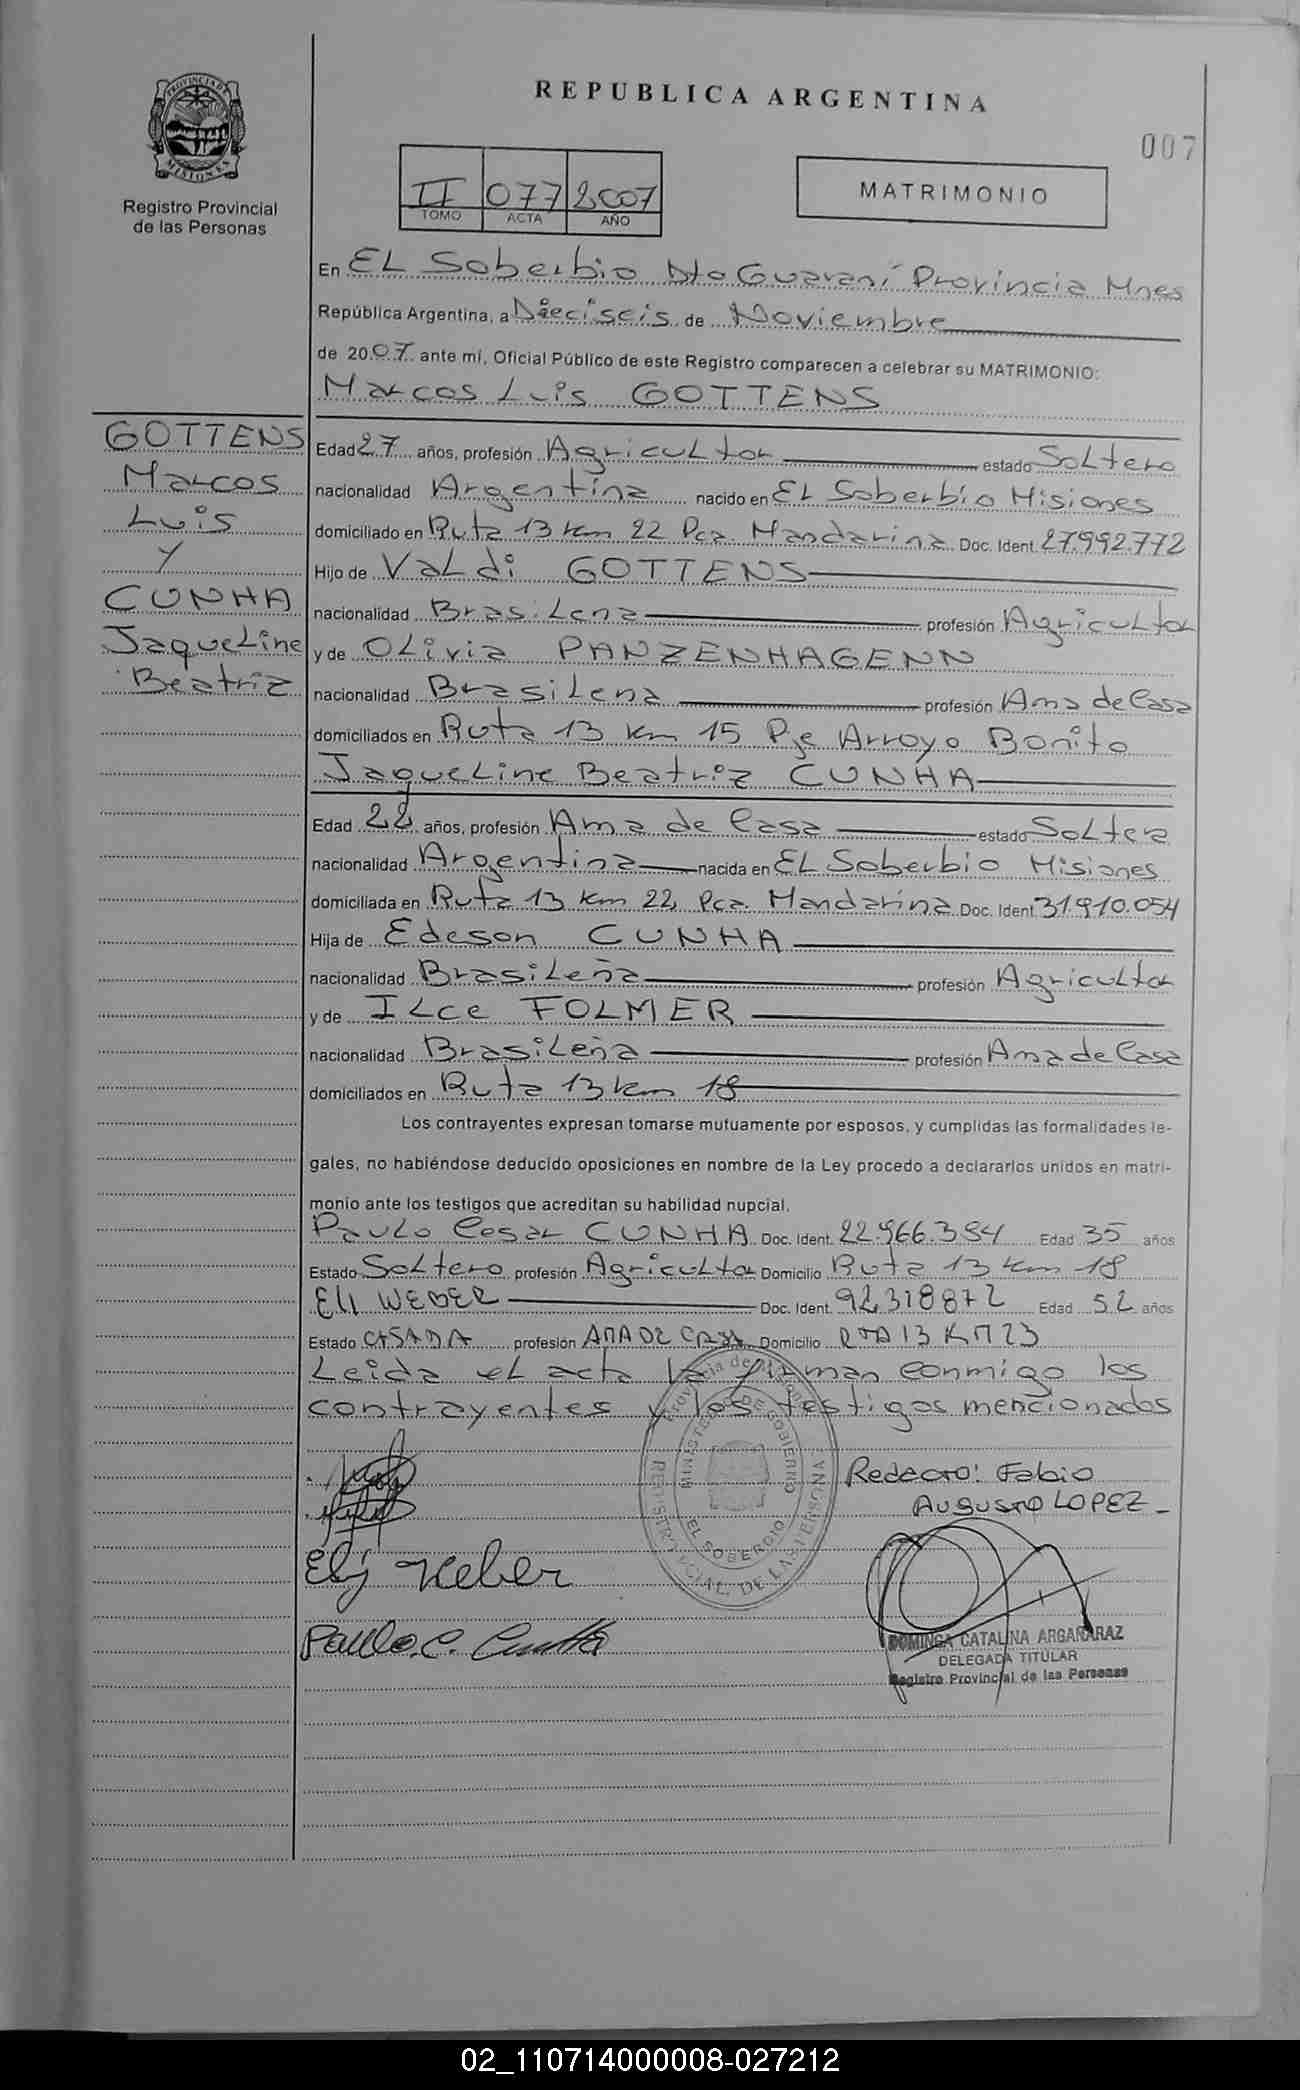 REPUBLICA ARGENTINA
007
PROVINCIA DE
MISIONES
Registro Provincial
de las Personas
II 077 2007
TOMO ACTA AÑO
MATRIMONIO
En EL Soberbio Dto Guaraní Provincia Mnes
República Argentina, a Dieciseis de Noviembre
de 2007 ante mí, Oficial Público de este Registro comparecen a celebrar su MATRIMONIO:
Marcos Luis GOTTENS
GOTTENS
Marcos
Luis
y
CUNHA
Jaqueline
Beatriz
Edad 27 años, profesión Agricultor estado Soltero
nacionalidad Argentina nacido en EL Soberbio Misiones
domiciliado en Ruta 13 km 22 Pca. Mandarina Doc. Ident. 27.992.772
Hijo de Valdi GOTTENS
nacionalidad Brasilena profesión Agricultor
y de Olivia PANZENHAGENN
nacionalidad Brasilena profesión Ama de Casa
domiciliados en Ruta 13 km 15 Pje Arroyo Bonito
Jaqueline Beatriz CUNHA
Edad 22 años, profesión Ama de Casa estado Soltera
nacionalidad Argentina nacida en EL Soberbio Misiones
domiciliada en Ruta 13 km 22 Pca. Mandarina Doc. Ident. 31.910.054
Hija de Edeson CUNHA
nacionalidad Brasileña profesión Agricultor
y de Ilce FOLMER
nacionalidad Brasileña profesión Ama de Casa
domiciliados en Ruta 13 km 18
Los contrayentes expresan tomarse mutuamente por esposos, y cumplidas las formalidades le-
gales, no habiéndose deducido oposiciones en nombre de la Ley procedo a declararlos unidos en matri-
monio ante los testigos que acreditan su habilidad nupcial.
Paulo Cesar CUNHA Doc. Ident. 22.966.384 Edad 35 años
Estado Soltero profesión Agricultor Domicilio Ruta 13 km 18
Eli WEBER Doc. Ident. 92318872 Edad 52 años
Estado CASADA profesión AMA DE CASA Domicilio RTA 13 KM 23
Leida el acta la firman conmigo los
contrayentes y los testigos mencionados
Provincia de Misiones
MINISTERIO DE GOBIERNO
REGISTRO PROVINCIAL DE LAS PERSONAS
EL SOBERBIO
Redacto: Fabio
AUGUSTO LOPEZ -
Elj Heber
Paulo. C. Cunha
DOMINGA CATALINA ARGAÑARAZ
DELEGADA TITULAR
Registro Provincial de las Personas
02_110714000008-027212